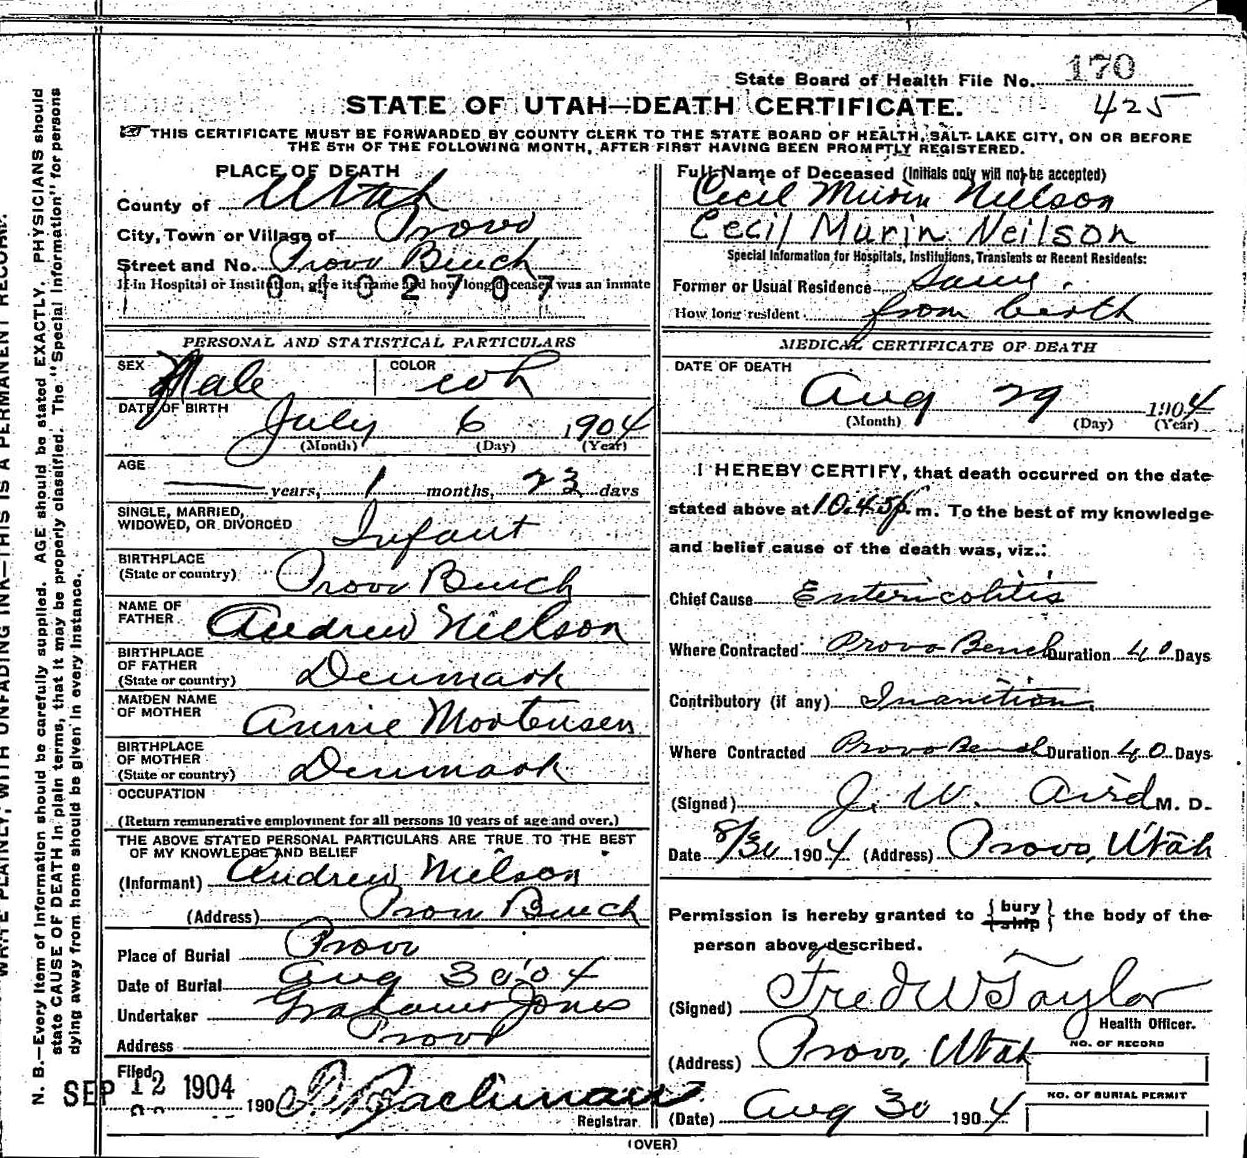 State Board of Health File No. 170
425
STATE OF UTAH—DEATH CERTIFICATE.
THIS CERTIFICATE MUST BE FORWARDED BY COUNTY CLERK TO THE STATE BOARD OF HEALTH, SALT LAKE CITY, ON OR BEFORE
THE 5TH OF THE FOLLOWING MONTH, AFTER FIRST HAVING BEEN PROMPTLY REGISTERED.
PLACE OF DEATH
County of Utah
City, Town or Village of Provo
Street and No. Provo Bench
If in Hospital or Institution, give its name and how long deceased was an inmate
0402707
PERSONAL AND STATISTICAL PARTICULARS
SEX Male COLOR wh
DATE OF BIRTH
July 6 1904
(Month) (Day) (Year)
AGE
years, 1 months, 23 days
SINGLE, MARRIED,
WIDOWED, OR DIVORCED Infant
BIRTHPLACE
(State or country) Provo Bench
NAME OF
FATHER Andrew Nielson
BIRTHPLACE
OF FATHER
(State or country) Denmark
MAIDEN NAME
OF MOTHER Annie Mortensen
BIRTHPLACE
OF MOTHER
(State or country) Denmark
OCCUPATION
(Return remunerative employment for all persons 10 years of age and over.)
THE ABOVE STATED PERSONAL PARTICULARS ARE TRUE TO THE BEST
OF MY KNOWLEDGE AND BELIEF
(Informant) Andrew Nielson
(Address) Provo Bench
Place of Burial Provo
Date of Burial Aug 30 '04
Undertaker Jones
Address Provo
Filed
SEP 12 1904 190
Bachman
Registrar
Full Name of Deceased (Initials only will not be accepted)
Cecil Murin Nielson
Cecil Murin Neilson
Special Information for Hospitals, Institutions, Transients or Recent Residents:
Former or Usual Residence Same.
How long resident from birth
MEDICAL CERTIFICATE OF DEATH
DATE OF DEATH
Aug 29 1904
(Month) (Day) (Year)
I HEREBY CERTIFY, that death occurred on the date
stated above at 10.45 p. m. To the best of my knowledge
and belief cause of the death was, viz.:
Chief Cause Entericolitis
Where Contracted Provo Bench Duration 40 Days
Contributory (if any) Inanition
Where Contracted Provo Bench Duration 40 Days
(Signed) J. W. Aird M. D.
Date 8/30 1904 (Address) Provo, Utah
Permission is hereby granted to { bury ship } the body of the
person above described.
(Signed) Fred W Taylor
Health Officer.
(Address) Provo, Utah
NO. OF RECORD
NO. OF BURIAL PERMIT
(Date) Aug 30 1904
(OVER)
WRITE PLAINLY, WITH UNFADING INK—THIS IS A PERMANENT RECORD.
N. B.—Every item of information should be carefully supplied. AGE should be stated EXACTLY. PHYSICIANS should
state CAUSE OF DEATH in plain terms, that it may be properly classified. The "Special Information" for persons
dying away from home should be given in every instance.